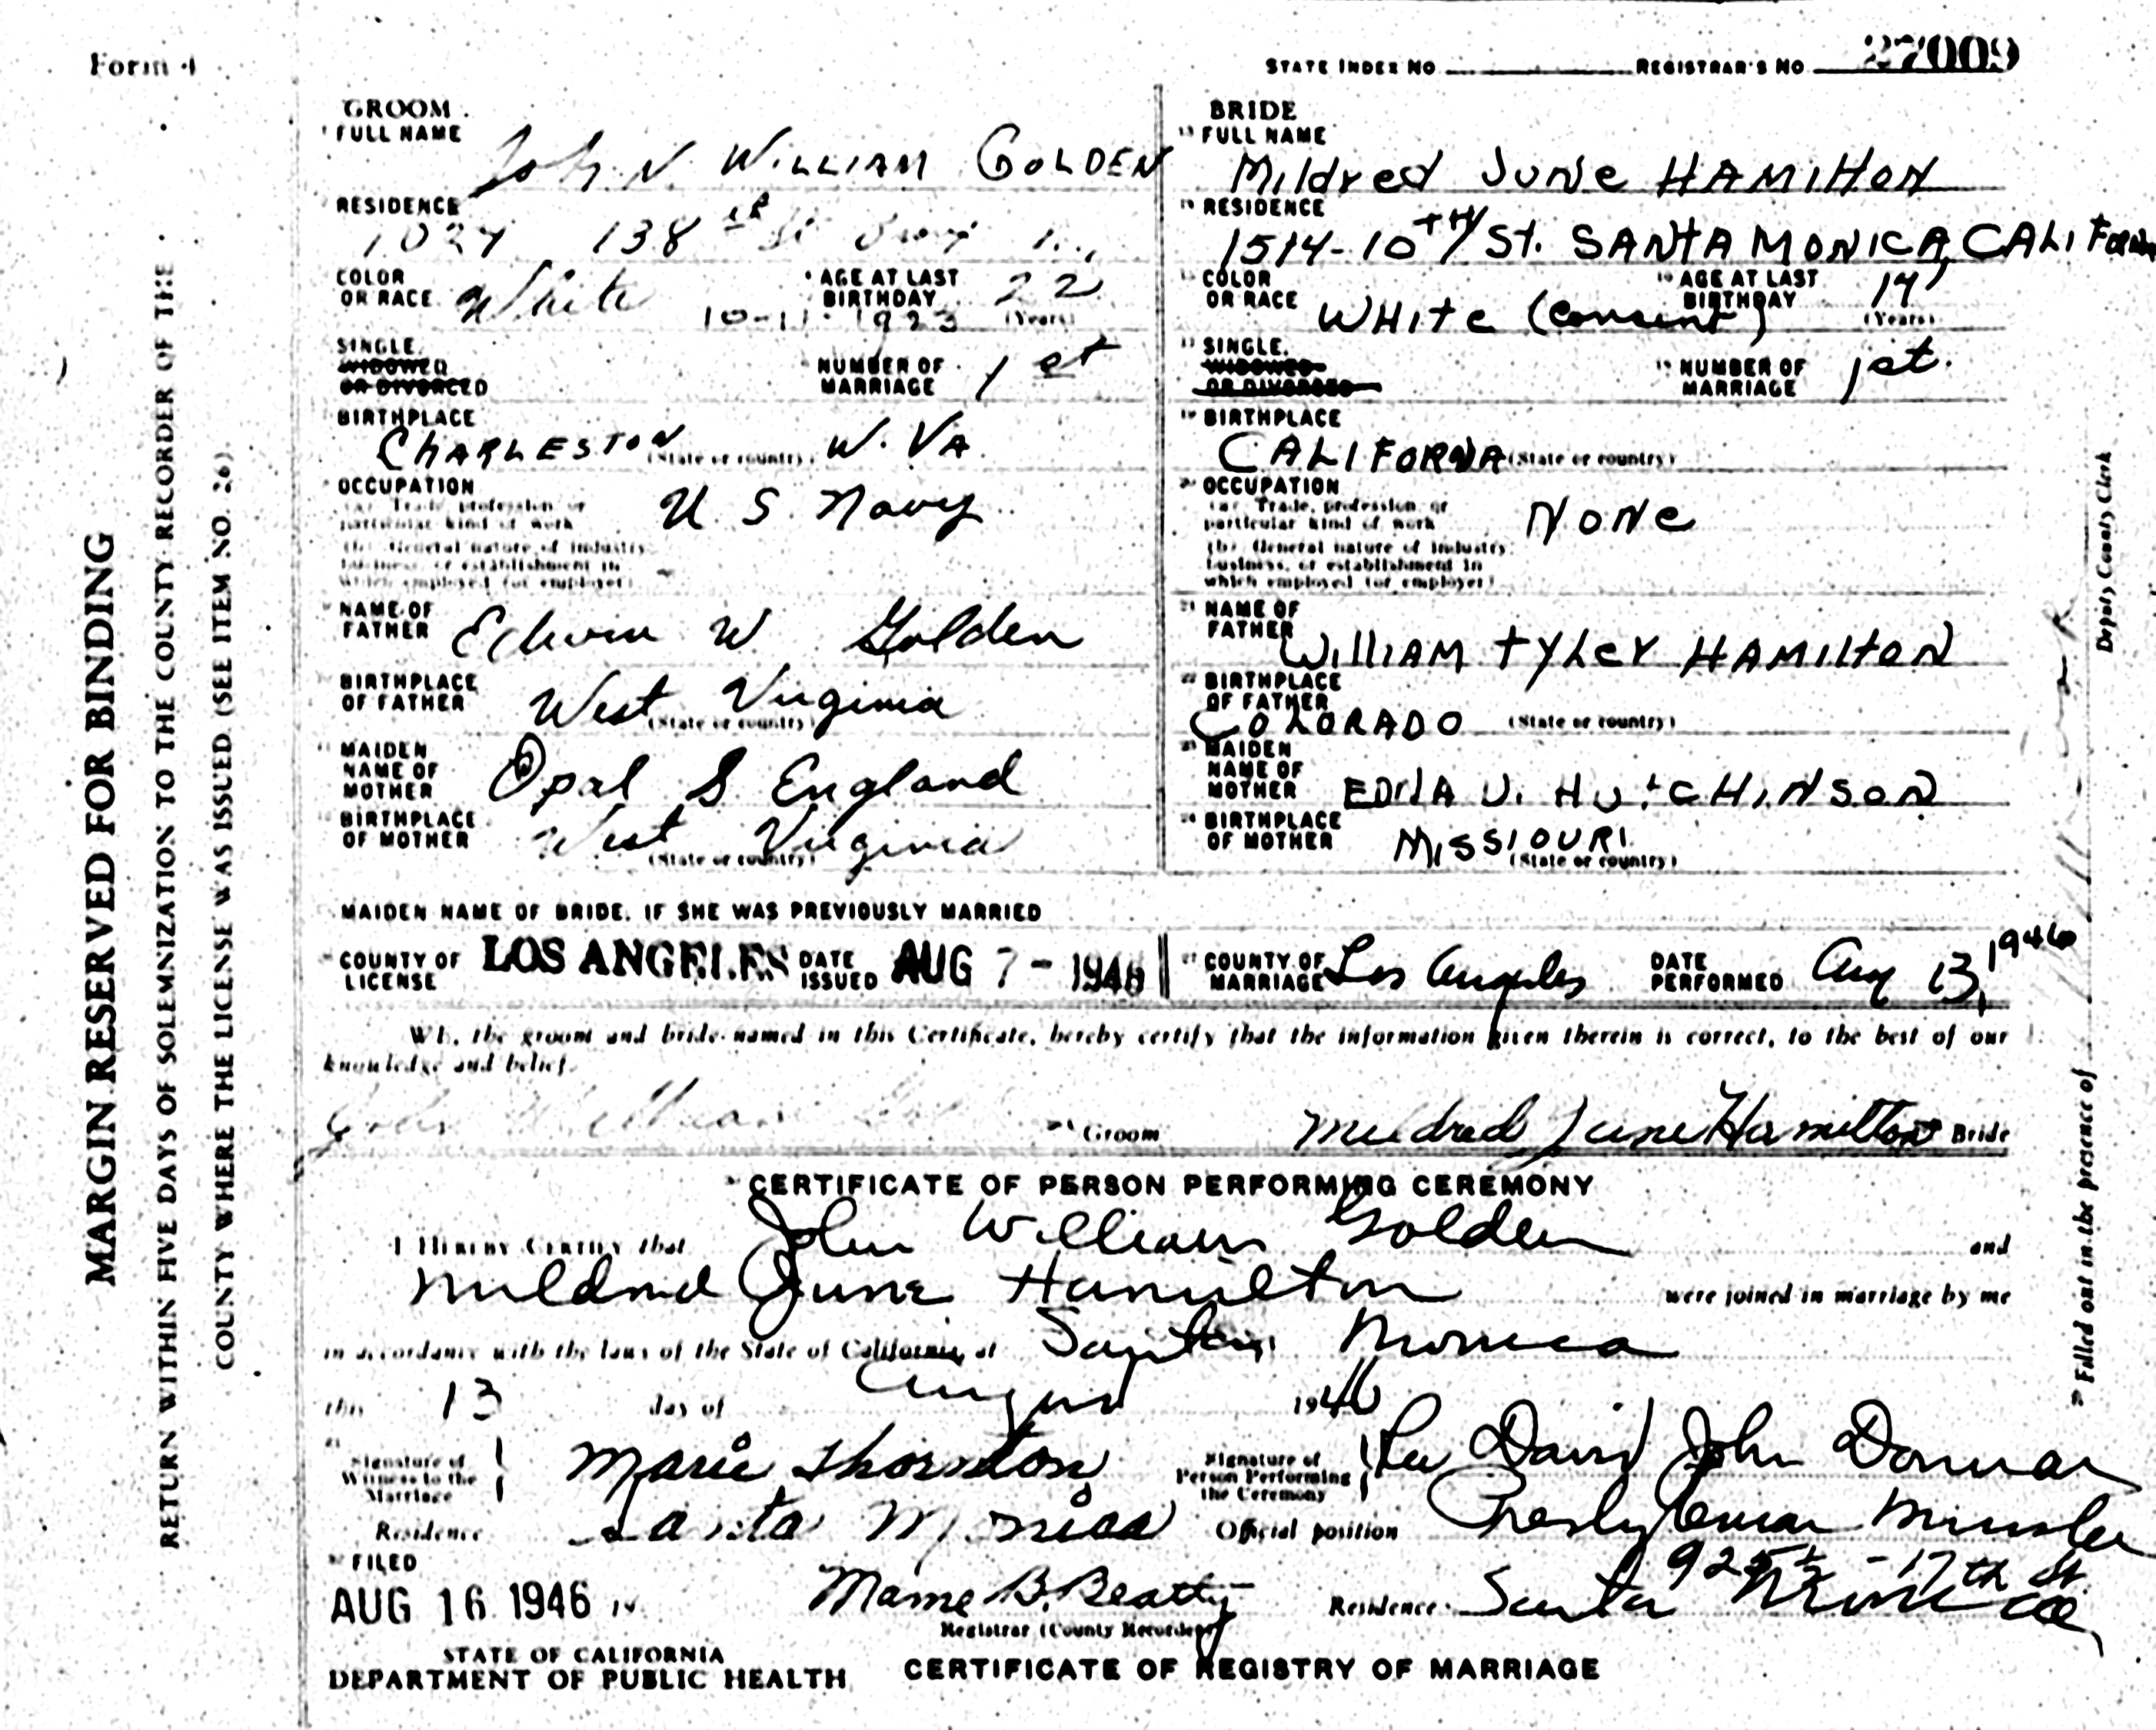 Form 4
STATE INDEX NO. REGISTRAR'S NO. 27009
GROOM
FULL NAME John William Golden
RESIDENCE 138 St
COLOR OR RACE White 10-11-1923 AGE AT LAST BIRTHDAY 22 (Years)
SINGLE, WIDOWED OR DIVORCED NUMBER OF MARRIAGE 1st
BIRTHPLACE CHARLESTON W. VA (State or country)
OCCUPATION U S Navy
(a) Trade, profession or particular kind of work
(b) General nature of industry, business, or establishment in which employed (or employer)
NAME OF FATHER Edwin W Golden
BIRTHPLACE OF FATHER West Virginia (State or country)
MAIDEN NAME OF MOTHER Opal S England
BIRTHPLACE OF MOTHER West Virginia (State or country)
BRIDE
FULL NAME Mildred June HAMILTON
RESIDENCE 1514-10TH St. SANTA MONICA, CALIFORNIA
COLOR OR RACE WHite (Consent) AGE AT LAST BIRTHDAY (Years)
SINGLE, WIDOWED OR DIVORCED NUMBER OF MARRIAGE 1st.
BIRTHPLACE CALIFORNA (State or country)
OCCUPATION NONe
(a) Trade, profession or particular kind of work
(b) General nature of industry, business, or establishment in which employed (or employer)
NAME OF FATHER William Tyler HAMILTON
BIRTHPLACE OF FATHER COLORADO (State or country)
MAIDEN NAME OF MOTHER EDNA V. HUTCHINSON
BIRTHPLACE OF MOTHER MISSIOURI (State or country)
MAIDEN NAME OF BRIDE, IF SHE WAS PREVIOUSLY MARRIED
COUNTY OF LICENSE LOS ANGELES DATE ISSUED AUG 7- 1946 COUNTY OF MARRIAGE Los Angeles DATE PERFORMED Aug 13, 1946
WE, the groom and bride named in this Certificate, hereby certify that the information given therein is correct, to the best of our
knowledge and belief.
John William Groom Mildred June Hamilton Bride
CERTIFICATE OF PERSON PERFORMING CEREMONY
I HEREBY CERTIFY that John William Golden and
Mildred June Hamilton were joined in marriage by me
in accordance with the laws of the State of California, at Santa Monica
this 13 day of August 1946
Signature of Witness to the Marriage Marie Thornton Signature of Person Performing the Ceremony Rev David John Donnan
Residence Santa Monica Official position Presbyterian Minister
FILED AUG 16 1946 Mame B. Beatty Residence 925½ - 17th St. Santa Monica
Registrar (County Recorder)
STATE OF CALIFORNIA
DEPARTMENT OF PUBLIC HEALTH CERTIFICATE OF REGISTRY OF MARRIAGE
MARGIN RESERVED FOR BINDING
RETURN WITHIN FIVE DAYS OF SOLEMNIZATION TO THE COUNTY RECORDER OF THE
COUNTY WHERE THE LICENSE WAS ISSUED (SEE ITEM NO. 26)
Filled out in the presence of Deputy County Clerk